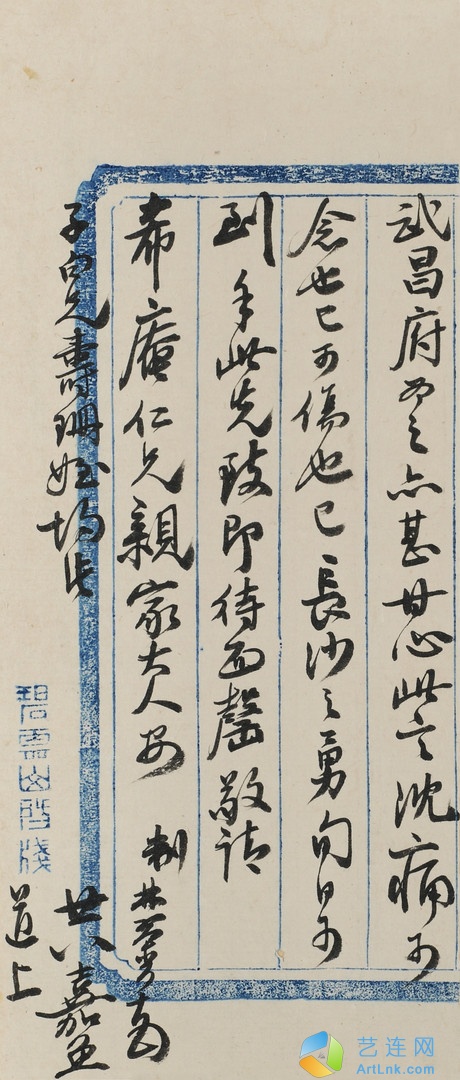 武昌府亦甚甘心此言沈痛可
念也已可傷也已長沙之勇旬日可
到手此先致即待面罄敬請
希庵仁兄親家大人安 制林翼
子兄壽珊姪均此
廿八嘉
道上
碧雲山牋
艺连网
ArtLnk.com